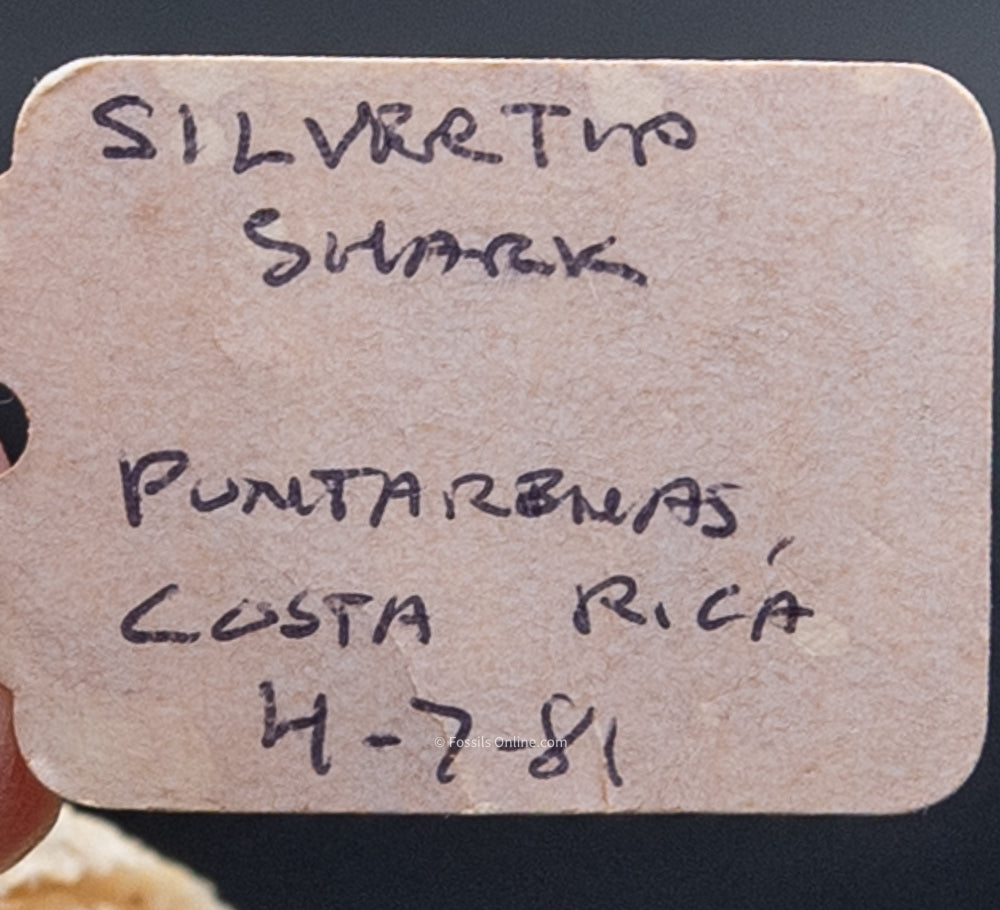 SILVERTIP
SHARK
PUNTARENAS,
COSTA RICA
4-7-81
© Fossils Online.com